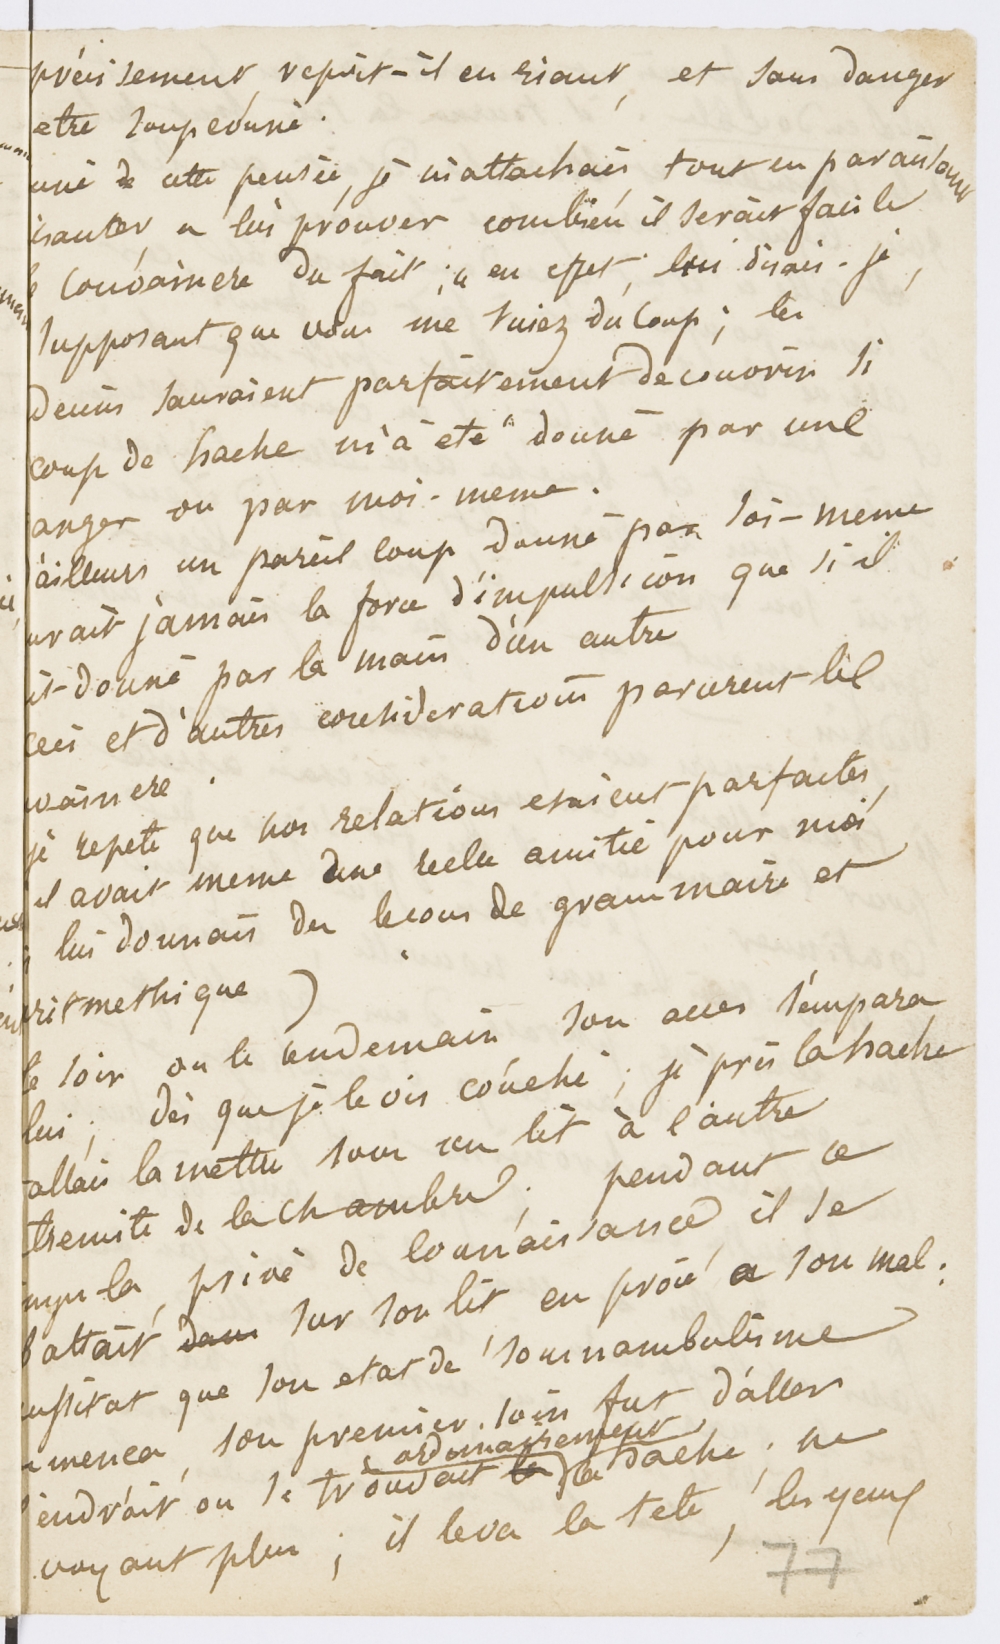 précisement, reprit-il en riant, et sans danger
etre soupconné.
de cette pensée, je m'attachais tout en paraissant
a lui prouver combien il serait facile
convaincre du fait ; "en effet, lui disais-je,
supposant que vous me tuiez du coup ; les
decins sauraient parfaitement decouvrir si
coup de hache m'a ete donné par une
anger ou par moi-meme.
ailleurs un pareil coup donné par soi-meme
urait jamais la force d'impulsion que si il
it donné par la main d'un autre
ceci et d'autres considerations parurent le
vaincre.
je repete que nos relations etaient parfaites,
il avait meme une reelle amitié pour moi
lui donnais des lecons de grammaire et
ritmethique )
le soir ou le lendemain son acces s'empara
lui ; dès que je le vis couché ; je pris la hache
allais la mettre sous un lit à l'autre
tremite de la chambre ; pendant ce
mps-la, privé de connaissance il se
battait dans sur son lit en proie a son mal.
ussitot que son etat de somnambulisme
menca, son premier soin fut d'aller
endroit ou se trouvait ordinairement la hache ; ne
voyant plus ; il leva la tete, les yeux
77